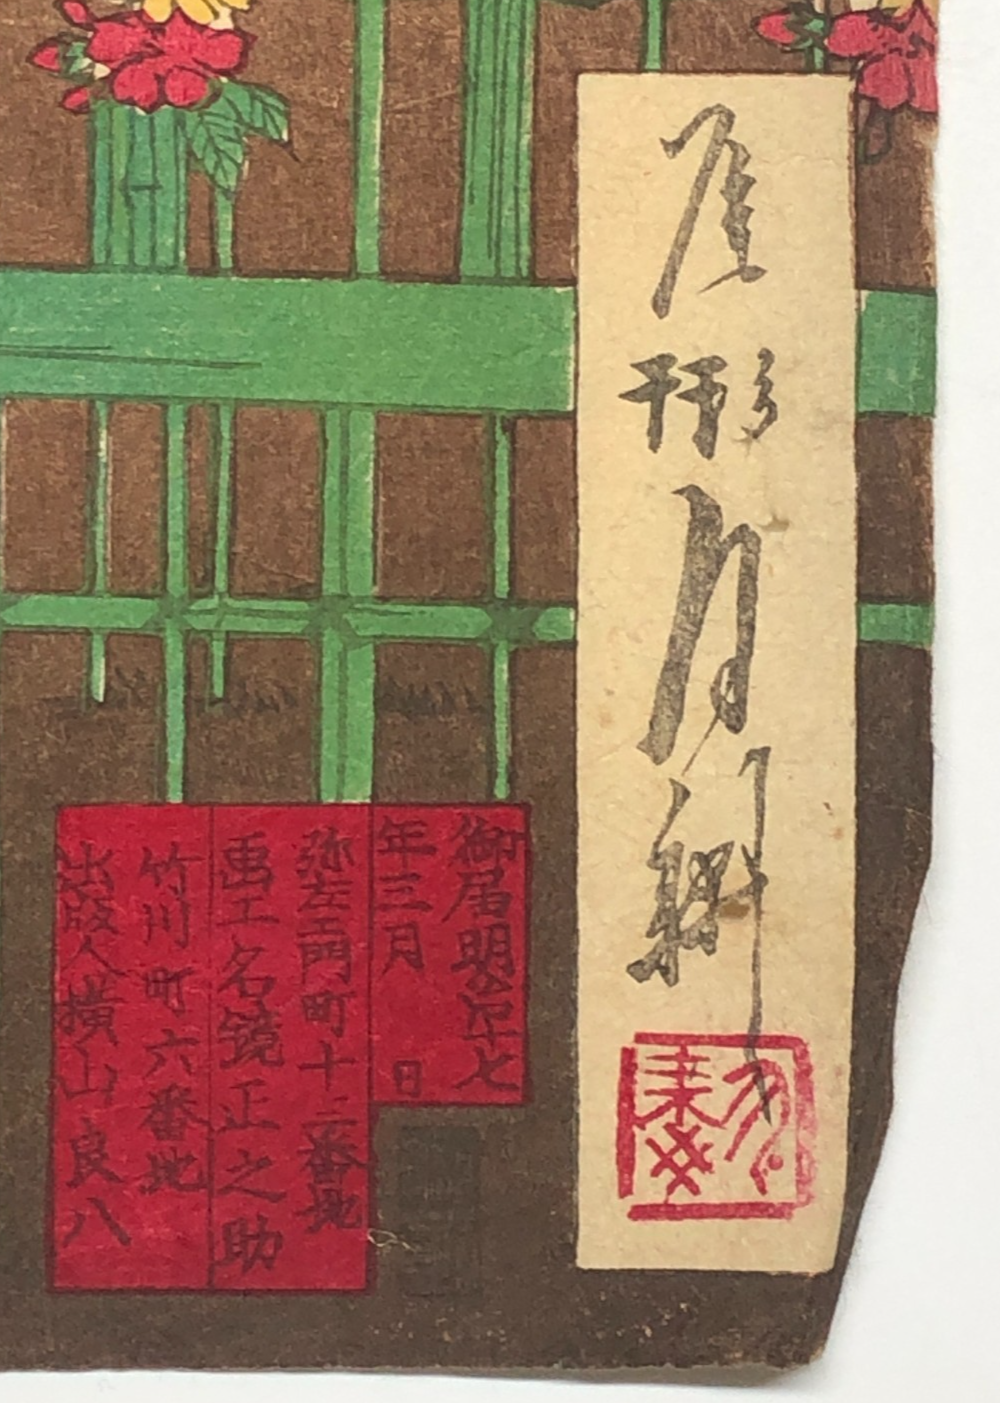 尾形月耕
御届明治十七
年三月　日
弥左エ門町十二番地
画工名鏡正之助
竹川町六番地
出版人横山良八